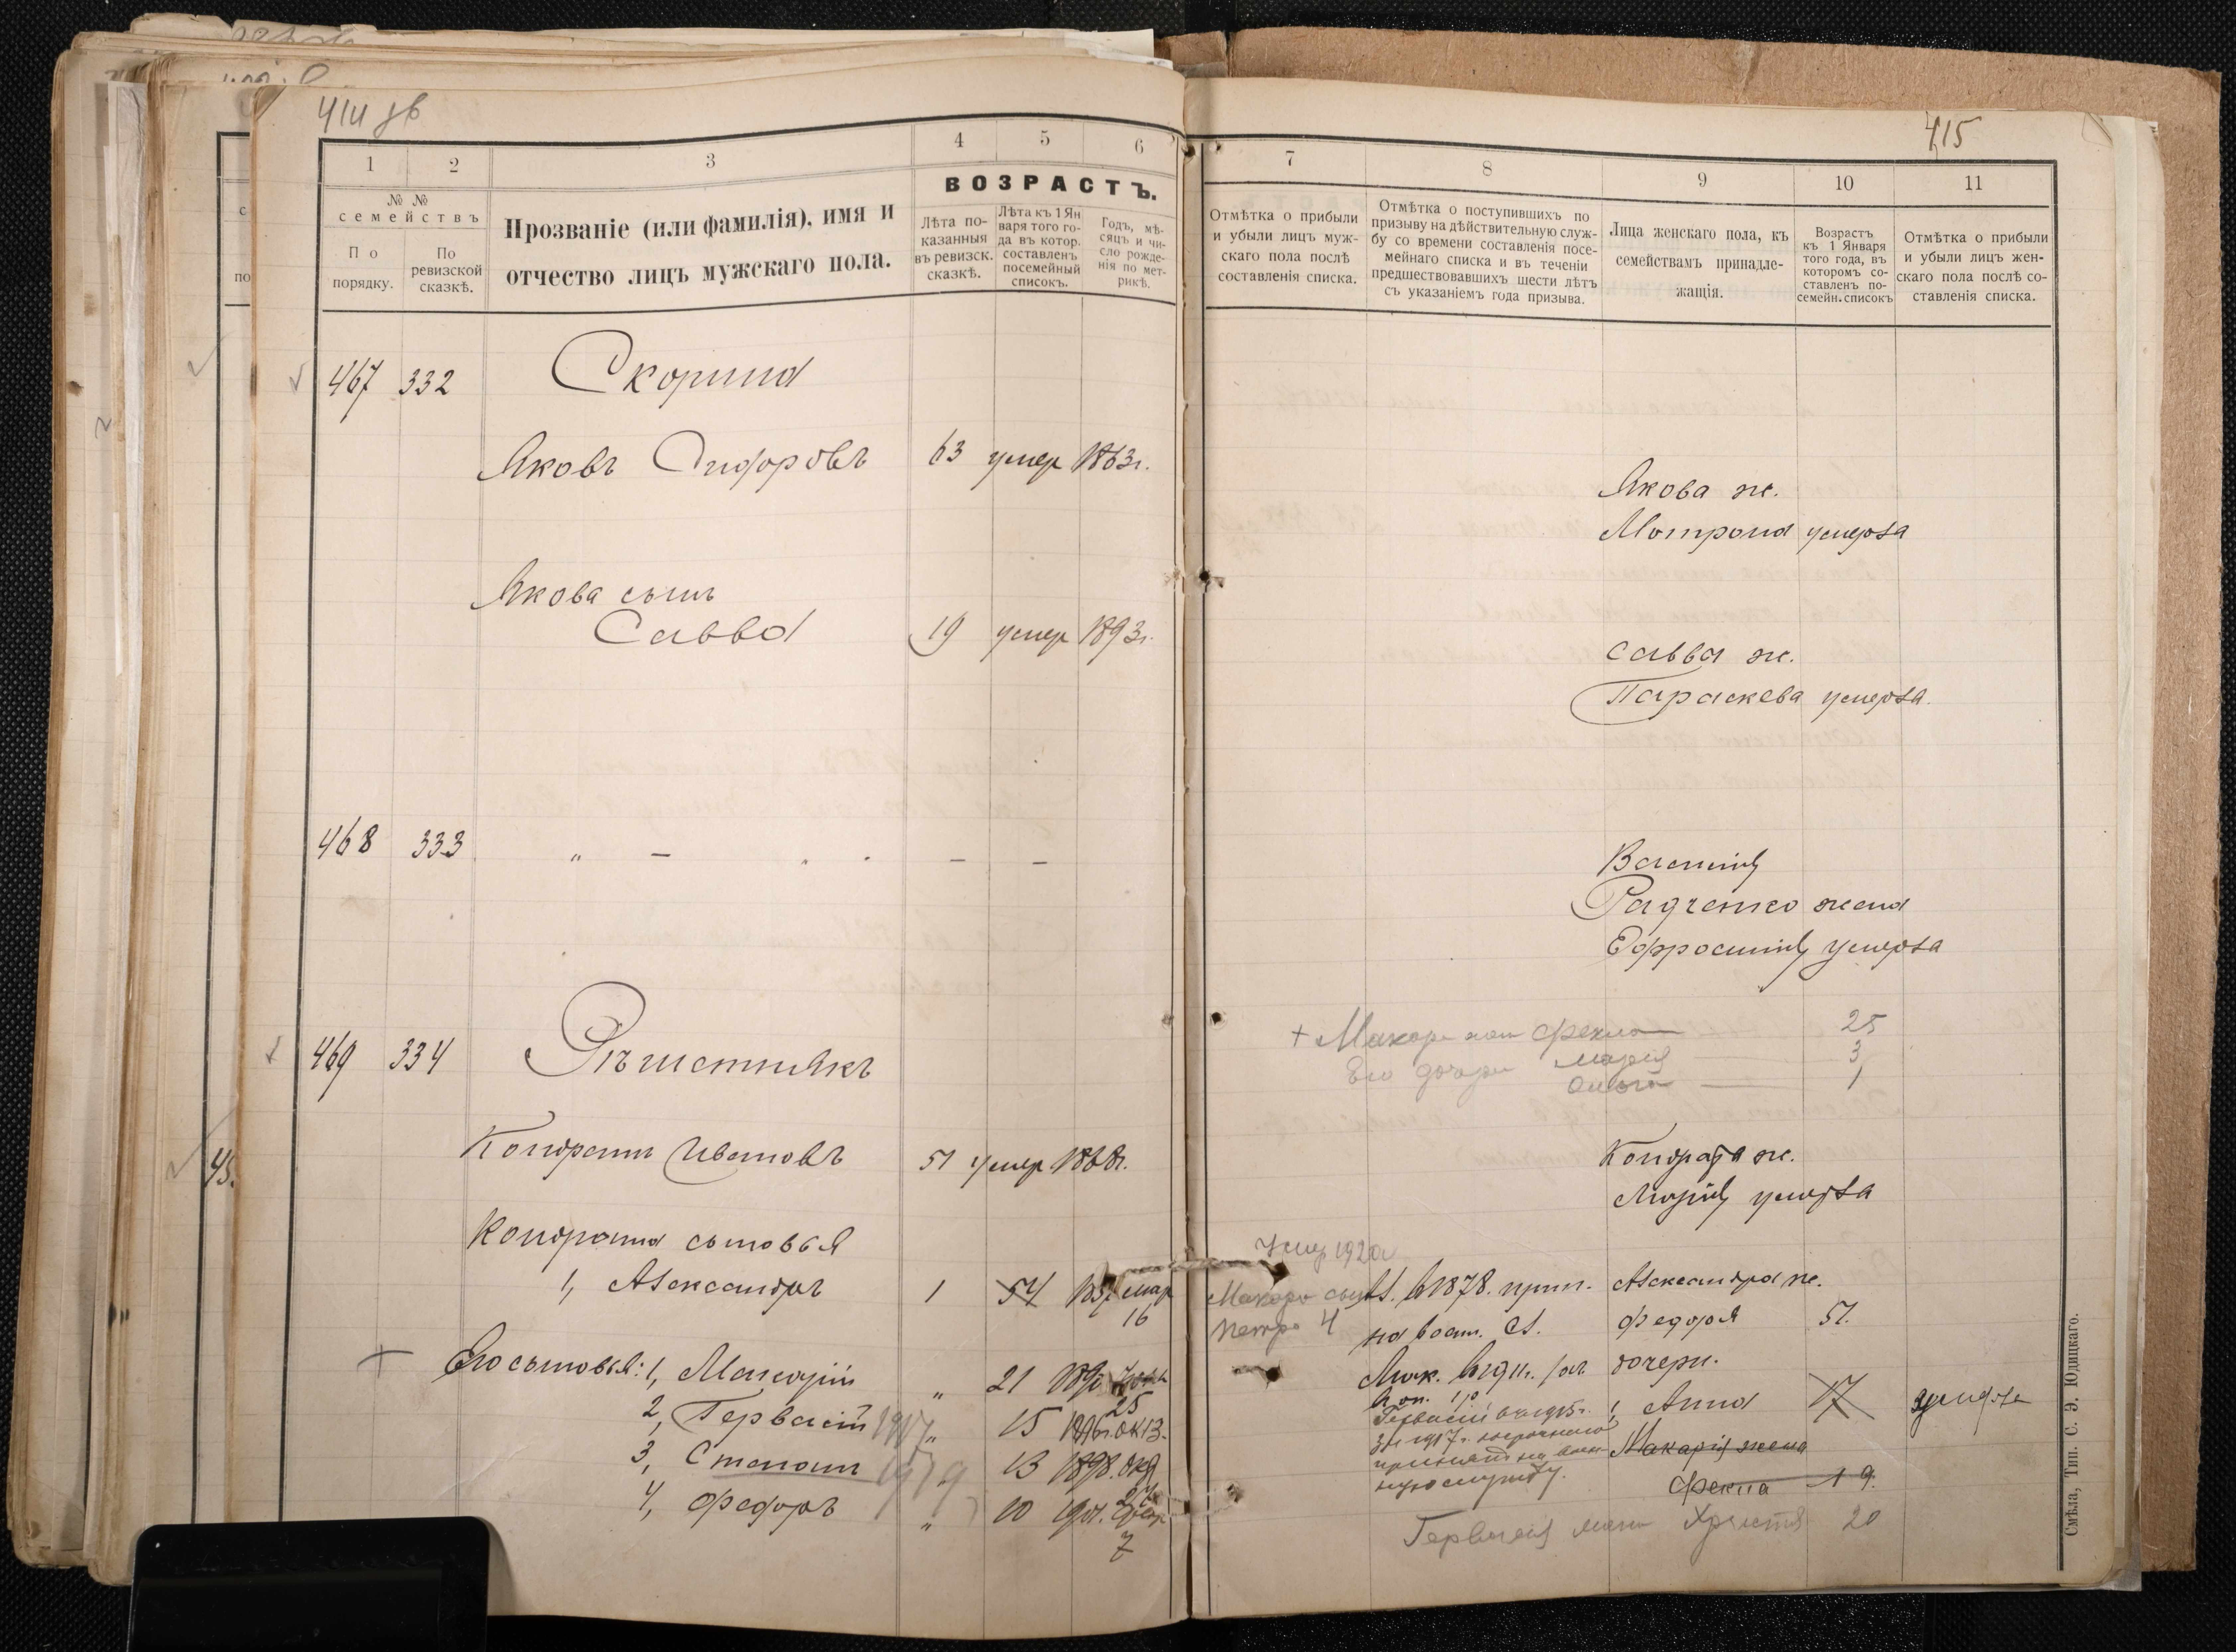 414 зв
415
1 2 3 4 5 6
№ №
семействъ
По порядку.
По ревизской сказкѣ.
Прозваніе (или фамилія), имя и
отчество лицъ мужскаго пола.
ВОЗРАСТЪ.
Лѣта по-
казанныя
въ ревизск.
сказкѣ.
Лѣта къ 1 Ян
варя того го-
да въ котор.
составленъ
посемейный
списокъ.
Годъ, мѣ-
сяцъ и чи-
сло рожде-
нія по мет-
рикѣ.
467 332 Скорина
Яковъ Сидоровъ 63 умер 1863г.
Якова сынъ
Савва 19 умер 1893г.
468 333 " — — —
469 334
Кондратъ Ивановъ 51 умер 1868г.
Кондрата сыновья
1, Александръ 1 54 1857 мар
16
Его сыновья: 1, Макарій " 21
25
2, Гервасій 1917 " 15 окт 3.
3, Степанъ 1919 13 1898.
4, Федоръ " 10 1901.
7
7 8 9 10 11
Отмѣтка о прибыли
и убыли лицъ муж-
скаго пола послѣ
составленія списка.
Отмѣтка о поступившихъ по
призыву на дѣйствительную служ-
бу со времени составленія посе-
мейнаго списка и въ теченіи
предшествовавшихъ шести лѣтъ
съ указаніемъ года призыва.
Лица женскаго пола, къ
семействамъ принадле-
жащія.
Возрастъ
къ 1 Января
того года, въ
которомъ со-
ставленъ по-
семейн. списокъ
Отмѣтка о прибыли
и убыли лицъ жен-
скаго пола послѣ со-
ставленія списка.
Якова ж.
Мотрона умерла
Савва ж.
Параскева умерла.
Василія
Радченко жена
Ефросинія умерла
+ Макара жон Фекла 25
Его дочери Марія 3
Ольга 1
Кондрата ж.
Марія умерла
Умер 1920г
Макара сын Ал. в 1878. прин. Александра ж.
Петро 4 Федора 51.
Мак. дочери.
Гервасій 1915г. 1, Анна 17 умерла
1917г. Макарія жена
службу. Фекла 19.
Гервасія жена Христя 20
Смѣла, Тип. С. Э. Юдицкаго.